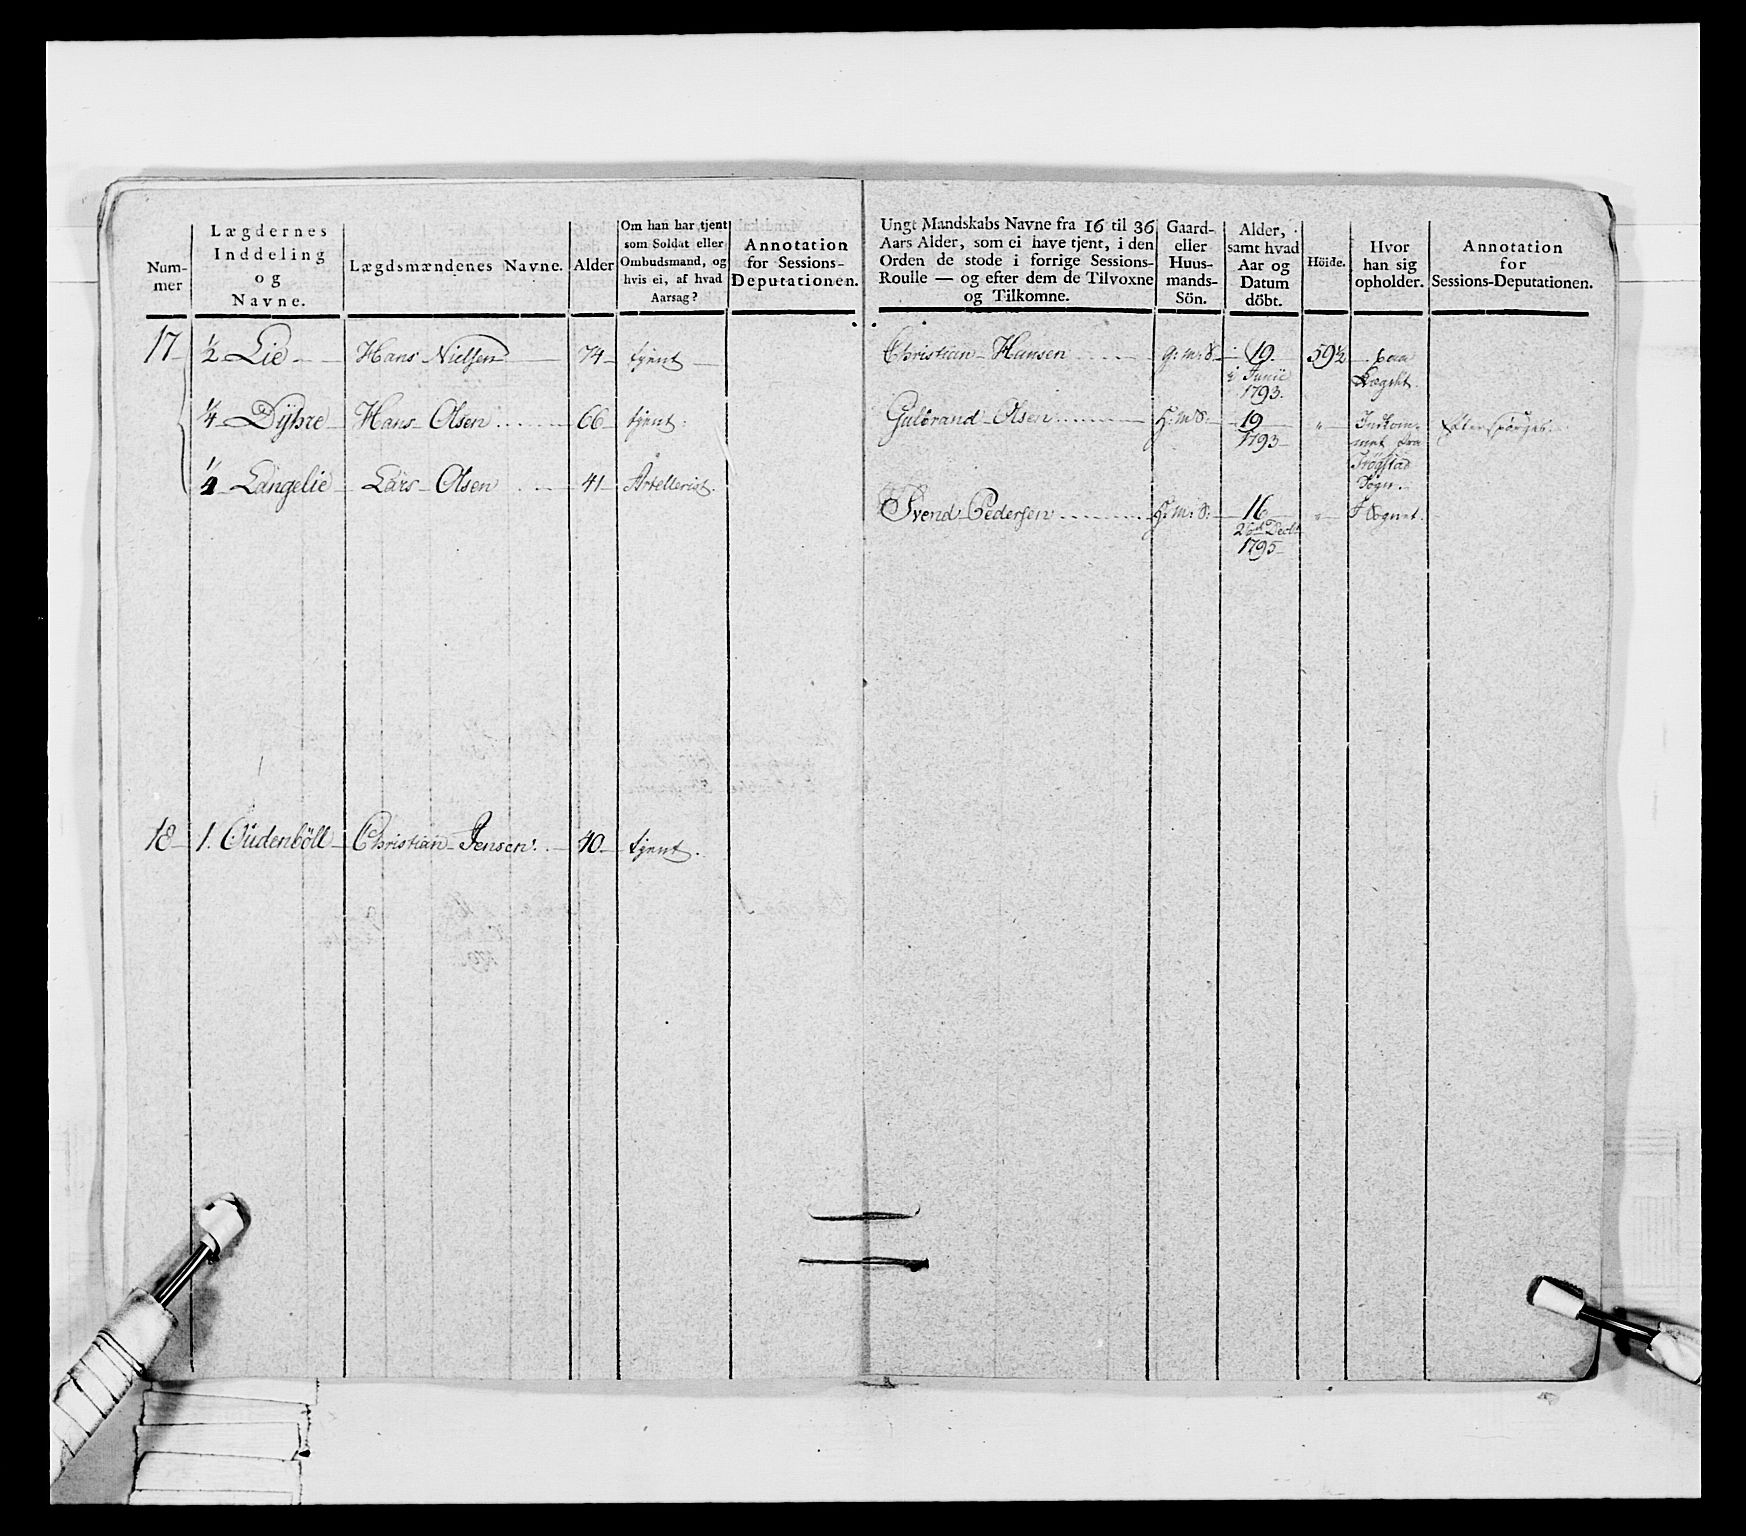 Num-
mer
Lægdernes
Inddeling
og
Navne.
Lægdsmændenes Navne.
Alder
Om han har tjent
som Soldat eller
Ombudsmand, og
hvis ei, af hvad
Aarsag?
Annotation
for Sessions-
Deputationen.
Ungt Mandskabs Navne fra 16 til 36
Aars Alder, som ei have tjent, i den
Orden de stode i forrige Sessions-
Roulle — og efter dem de Tilvoxne
og Tilkomne.
Gaard-
eller
Huus-
mands-
Sön.
Alder,
samt hvad
Aar og
Datum
döbt.
Höide.
Hvor
han sig
opholder.
Annotation
for
Sessions-Deputationen.
17 ½ Lie Hans Nielsen 74 tjent
¼ Dÿhre Hans Olsen 66 tjent
¼ Langelie Lars Olsen 41 Artellerist.
18 1. Oudenböll Christian Jensen 40 tjent.
Christian Hansen g: m: S. 19 59½ paa
Junii Lægdet.
1793.
Gulbrand Olsen H: m: S: 19 " Indkom-
1793 met fra
Sogn.
Svend Pedersen H: m: S: 16 " I Sognet.
26d Decbr
1795